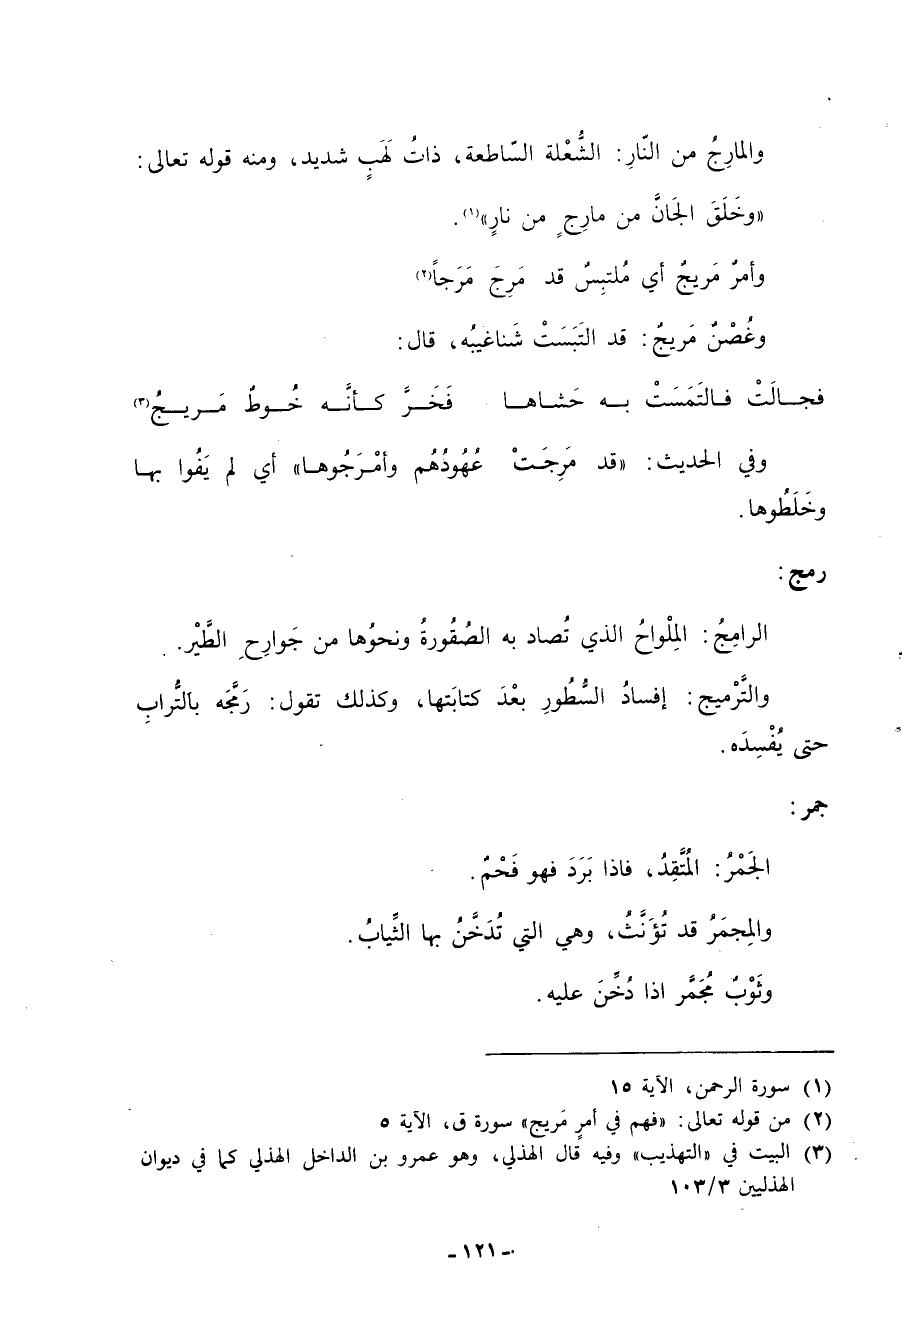 والمارِجُ من النّارِ: الشُّعْلة السّاطعة، ذاتُ لَهَبٍ شديد، ومنه قوله تعالى:
«وخَلَقَ الجَانَّ من مارِجٍ من نارٍ»(١).
وأمرٌ مَريجٌ أي مُلتبِسٌ قد مَرِجَ مَرَجاً(٢)
وغُصْنٌ مَريجٌ: قد التَبَسَتْ شَناغيبُه، قال:
فجـالَتْ فـالتَمَسَتْ بـه حَشـاهـا فَخَـرَّ كـأنَّـه خُـوطٌ مَـريـجُ(٣)
وفي الحديث: «قد مَرِجَـتْ عُهُودُهُم وأمْـرَجُوهـا» أي لم يَفُوا بها
وخَلَطُوها.
رمج:
الرامِجُ: المِلْواحُ الذي تُصاد به الصُقُورةُ ونحوُها من جَوارِحِ الطَّيْر.
والتَّرْميج: إفسادُ السُّطُورِ بعْدَ كتابَتها، وكذلك تقول: رَمَّجَه بالتُّرابِ
حتى يُفْسِدَه.
جمر:
الجَمْرُ: المُتَّقِدُ، فاذا بَرَدَ فهو فَحْمٌ.
والمِجمَرُ قد تُؤَنَّثُ، وهي التي تُدَخَّنُ بها الثِّيابُ.
وثَوْبٌ مُجَمَّر اذا دُخِّنَ عليه.
(١) سورة الرحمن، الآية ١٥
(٢) من قوله تعالى: «فهم في أمرٍ مَريج» سورة ق، الآية ٥
(٣) البيت في «التهذيب» وفيه قال الهذلي، وهو عمرو بن الداخل الهذلي كما في ديوان
الهذليين ١٠٣/٣
- ١٢١ -